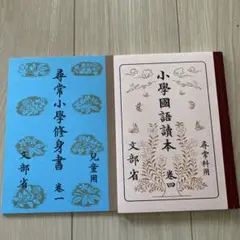 尋常小學修身書 卷一
兒童用
文部省
小學國語讀本 卷四
尋常科用
文部省